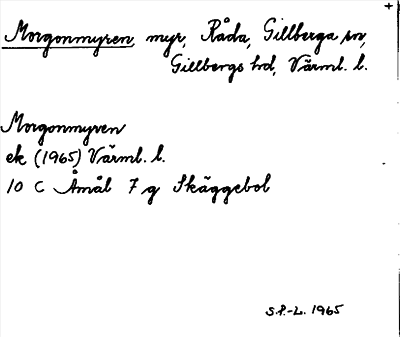 Morgonmyren, myr, Råda, Gillberga sn,
Gillbergs hd, Värml. l.
Morgonmyren
ek (1965) Värml. l.
10 C Åmål 7 g Skäggebol
S.P.-L. 1965